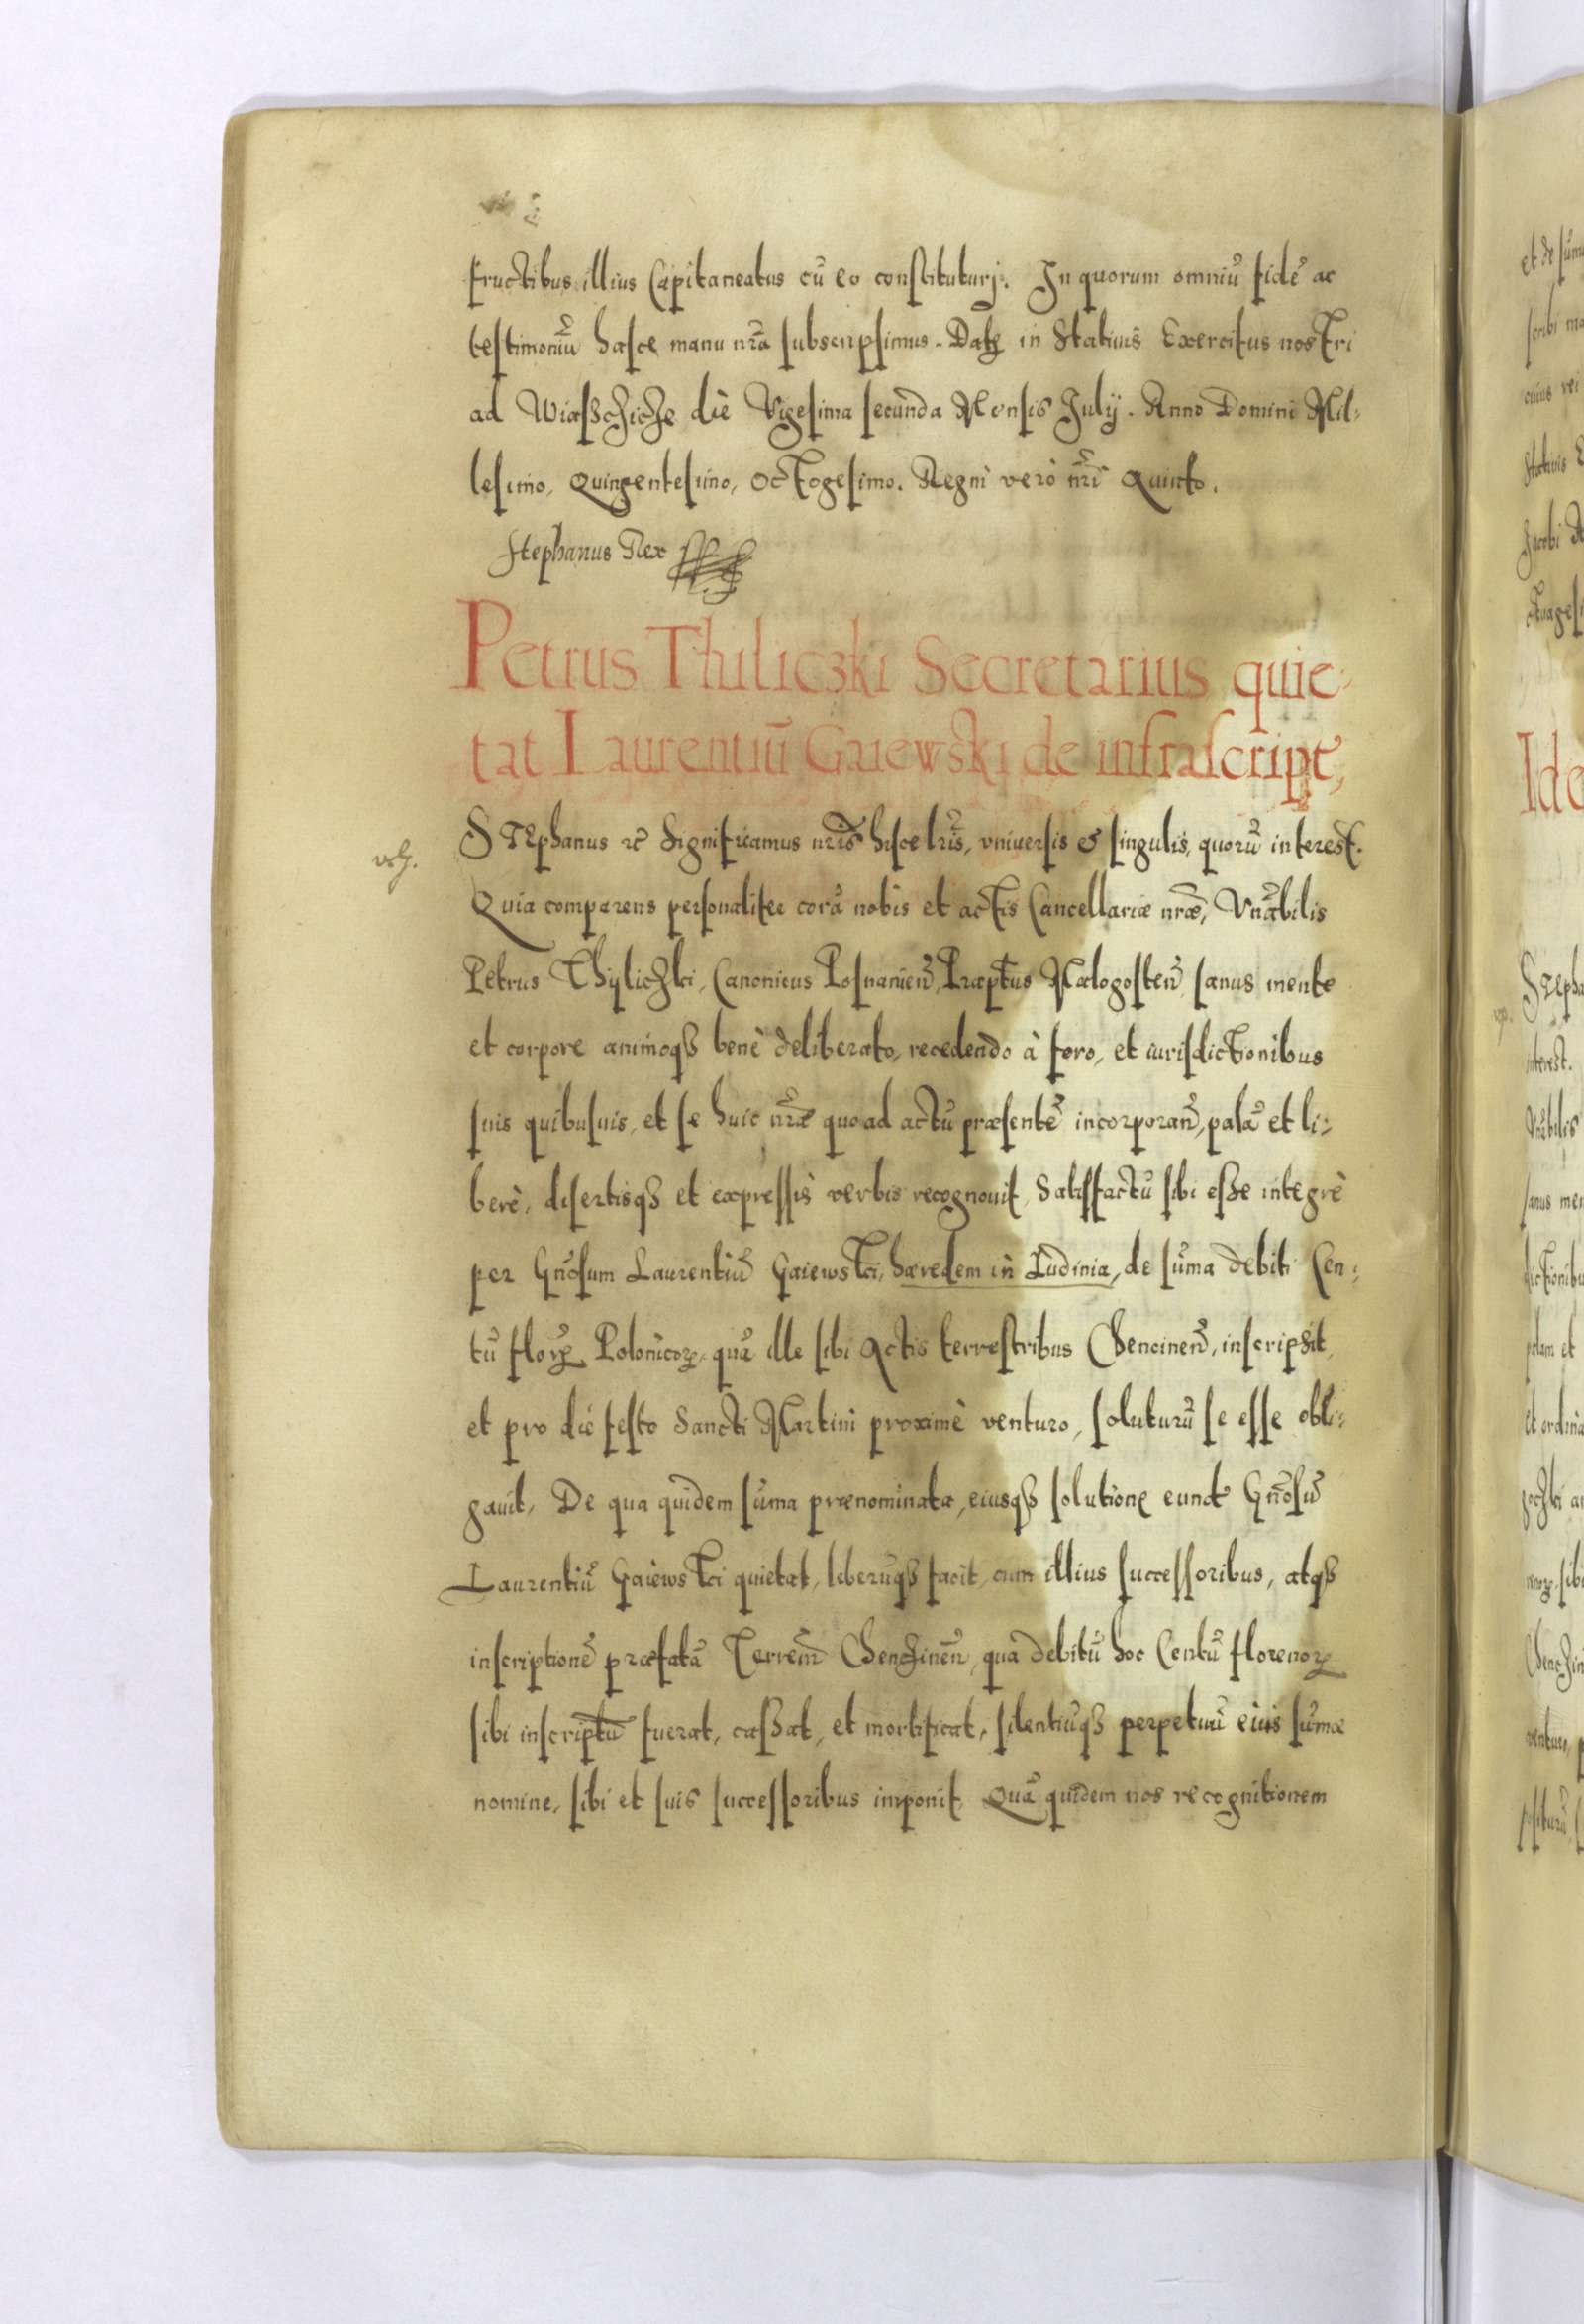 fructibus illius Capitaneatus cũ eo constituturj. In quorum omniũ fidẽ ac
testimoniũ hasce manu nrã subscripsimus. Datę in Stativis Exercitus nostri
ad Wiaßchiche die Vigesima secunda Mensis July. Anno Domini Mil:
lesimo, Quingentesimo, Octogesimo. Regni verò nrĩ Quinto.
Stephanus Rex
Petrus Tħiliczki Secretarius quie:
tat Laurentiũ Gaiewski de infrascript,
Stephanus rc̃ Significamus nrĩs hisce lrĩs, vniuersis & singulis, quorũ interest.
Quia comparens personaliter corã nobis et actis Cancellariæ nrãe, Vnãbilis
Petrus Thyliczki, Canonicus Posnanieñ, Præptũs Małogosteñ, sanus mente
et corpore animoqȝ benè deliberato, recedendo à foro, et iurisdictionibus
suis quibusuis, et se huic nrãe quo ad actũ præsentẽ incorporañ, palã et li:
berè, disertisqȝ et expressis verbis recognouit, Satisfactũ sibi eße integrè
per Gnõsum Laurentiũ Gaiewski, hæredem in Ludinia, de sũma debiti Cen:
tũ florꝝ Polonicoꝝ, quã ille sibi Actis terrestribus Chencineñ, inscripsit,
et pro die festo Sancti Martini proximè venturo, soluturũ se esse obli:
gauit, De qua quidem sũma prænominata, eiusqȝ solutione eund Gnõsũ
Laurentiũ Gaiewski quietat, liberũqȝ facit, cum illius successoribus, atqȝ
inscriptionẽ præfatã Terreñ Chenchineñ, qua debitũ hoc Centũ florenoꝝ
sibi inscriptũ fuerat, caßat, et mortificat, silentiũqȝ perpetuũ eius sũmæ
nomine, sibi et suis successoribus imponit, Quã quidem nos recognitionem